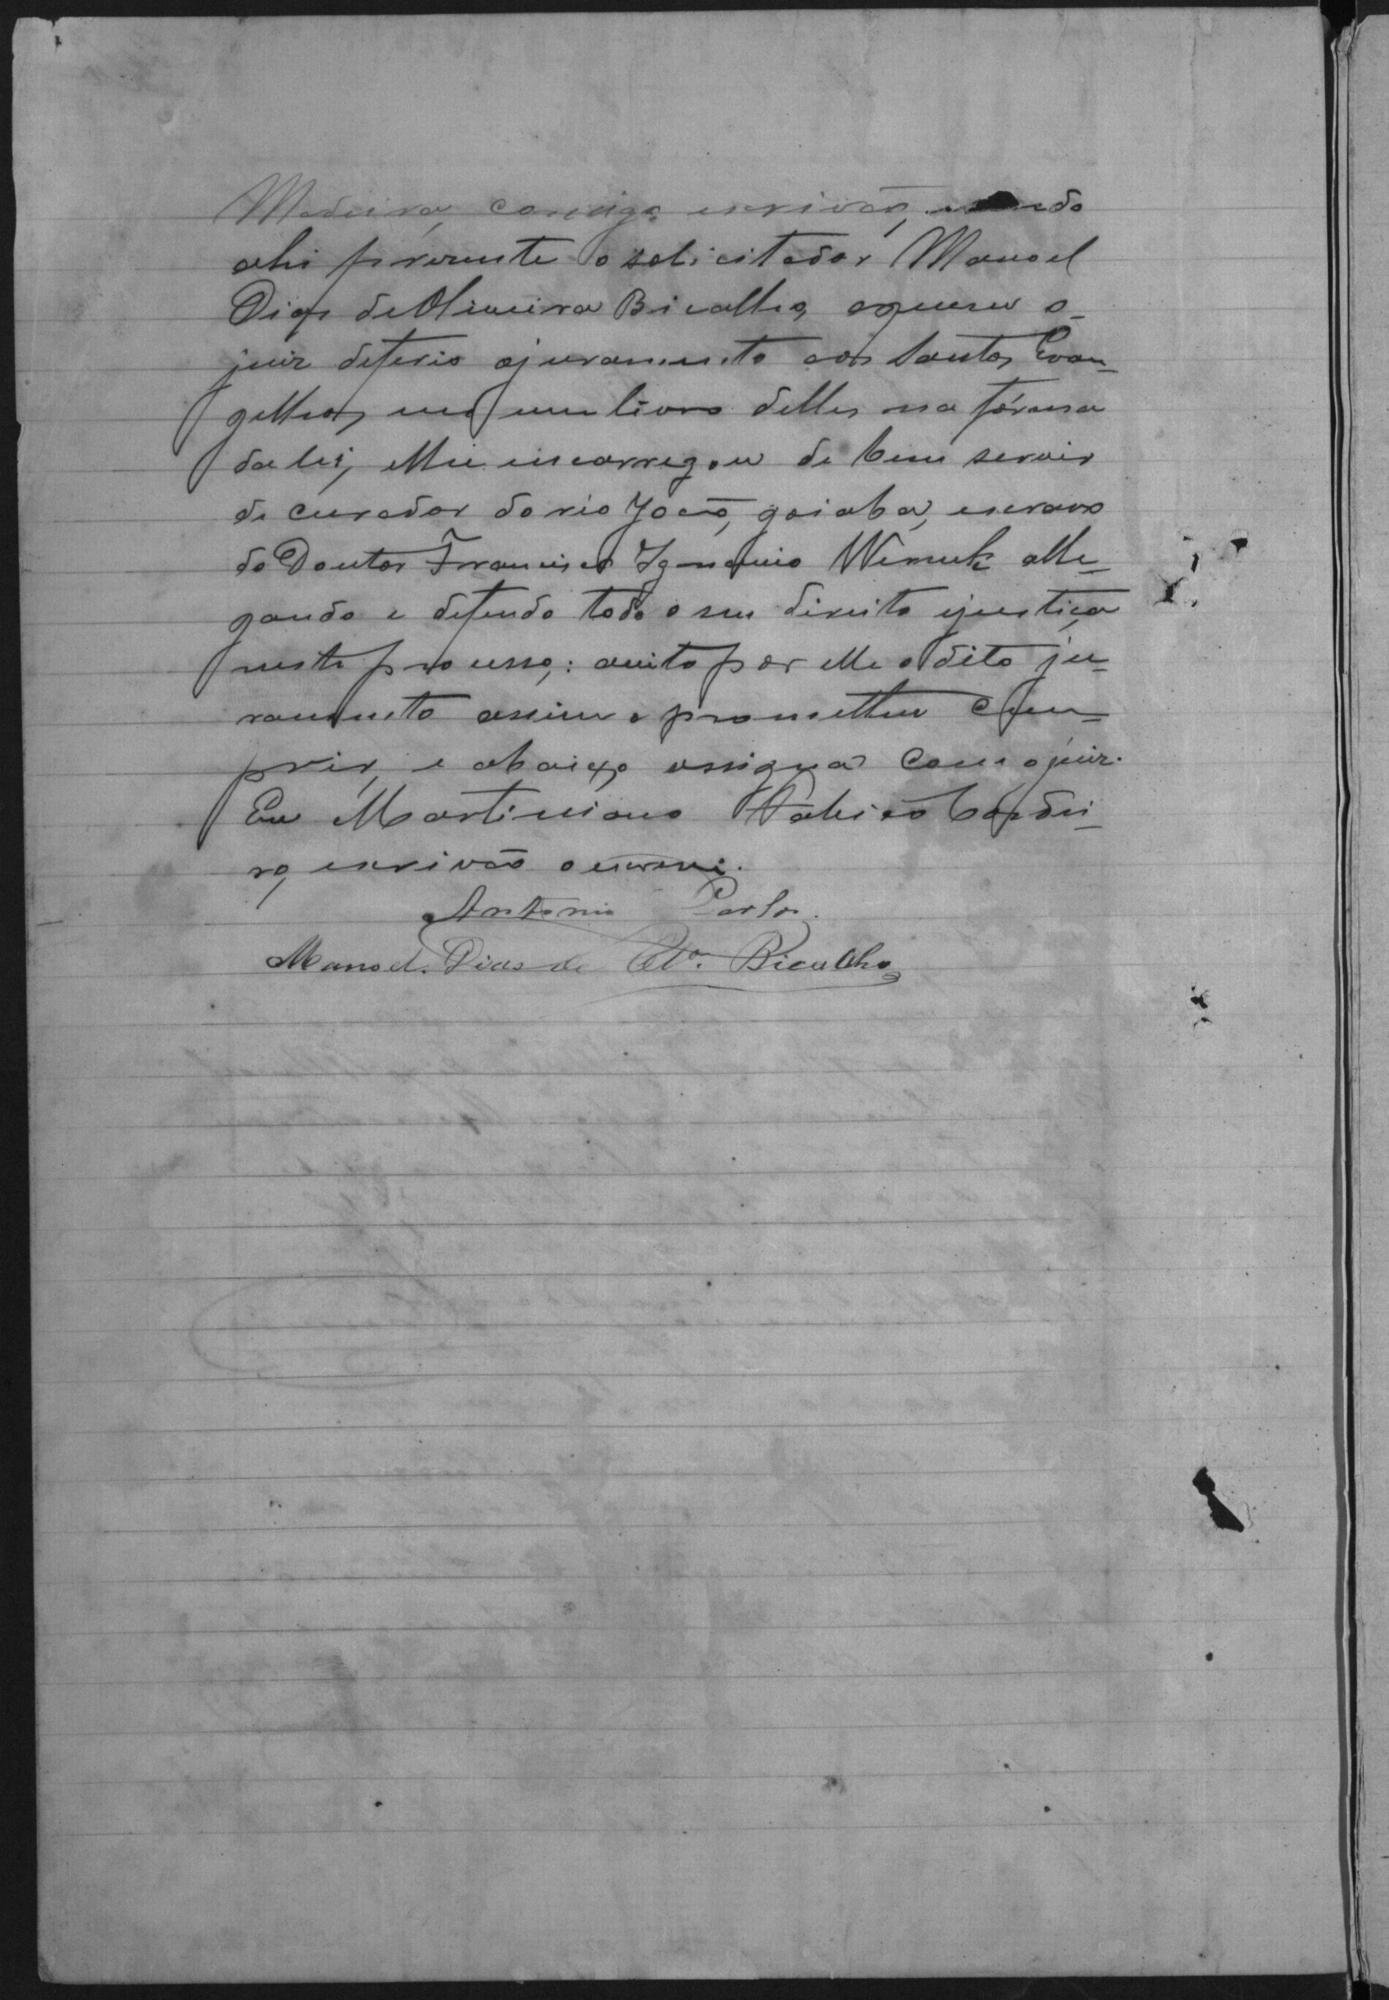 Madeira, comigo escrivão, sendo
ahi presente o solicitador Manoel
Dias de Oliveira Bicalho, a quem o
juiz deferio o juramento aos Santos Evan-
gelhos, em um livro delles na fórma
da lei, e lhe encarregou de bem servir
de curador do réo João, goiaba, escravo
do Doutor Francisco Ignacio Werneck alle-
gando e defendo todo o seu direito e justiça
neste processo,: aceito por elle o dito ju-
ramento assim o prometteu cum-
prir, e abaixo assigna com o juiz.
Eu Martiniano Cordei-
ro, escrivão o escrevi.
Antonio Carlos
Manoel Dias de Olivra. Bicalho